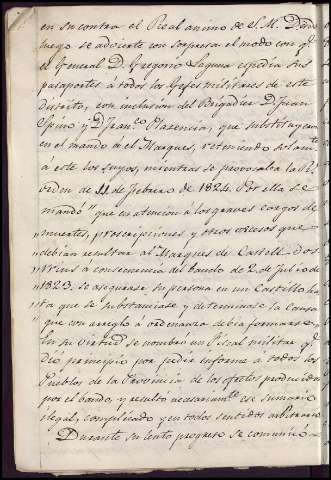 en su contra el Real animo de S. M. Desde
luego se advierte con sorpresa el modo con qe.
el General D. Gregorio Laguna expedia sus
pasaportes á todos los Gefes militares de este
distrito, con inclusion del Brigadier D. Juan
Espino y D. Franco. Plasencia, que substituyeron
en el mando á el Marques, reteniendo solamte.
á este los suyos, mientras se provocaba la Rl.
orden de 11 de Febrero de 1824. Por ella se
mandó "que en atencion á los graves cargos de
"muertes, proscripciones, y otros excesos que
"debian resultar al Marques de Castell-dos
"rrius á consecuencia del bando de 2 de Julio de
"1823, se asegurase su persona en un Castillo has
"ta que se substanciase y determinase la Causa
"que con arreglo á ordenanza debia formarse.
En su virtud se nombró un Fiscal militar qe.
dió principio por pedir informe á todos los
Pueblos de la Provincia de los efectos producidos
por el bando, y resultó necesariamte. ese sumario
ilegal, complicado y en todos sentidos arbitrario.
Durante su lento progreso se comunicó